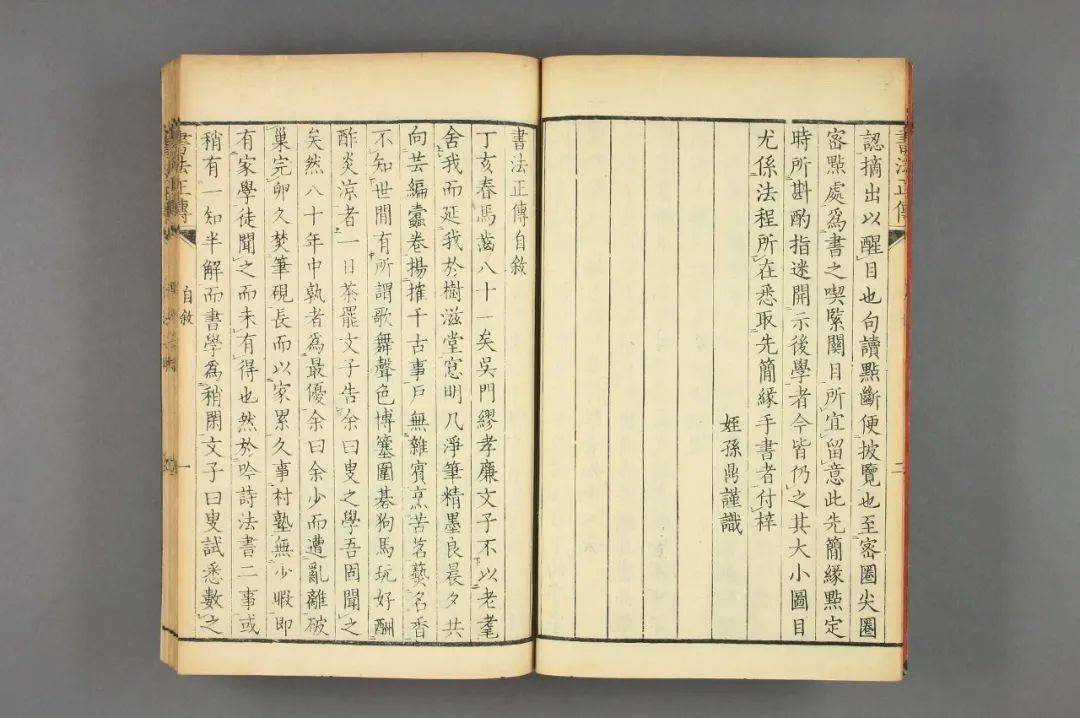 認摘出以醒目也句讀點斷便披覽也至密圈尖圈
密點處爲書之喫緊關目所宜留意此先簡緣點定
時所斟酌指迷開示後學者今皆仍之其大小圖目
尤係法程所在悉取先簡緣手書者付梓
姪孫鼎謹識
二
書法正傳
書法正傳自敘
丁亥春馬齒八十一矣吳門繆孝廉文子不以老耄
舍我而延我於樹滋堂窓明几淨筆精墨良晨夕共
向芸編蠹卷揚搉千古事戶無雜賓烹苦茗爇名香
不知世間有所謂歌舞聲色博簺圍棊狗馬玩好酬
酢炎涼者一日茶罷文子告余曰叟之學吾固聞之
矣然八十年中執者爲最優余曰余少而遭亂離破
巢完卵久焚筆硯長而以家累久事村塾無少暇即
有家學徒聞之而未有得也然於吟詩法書二事或
稍有一知半解而書學爲稍閑文子曰叟試悉數之
書法正傳
自敘
一